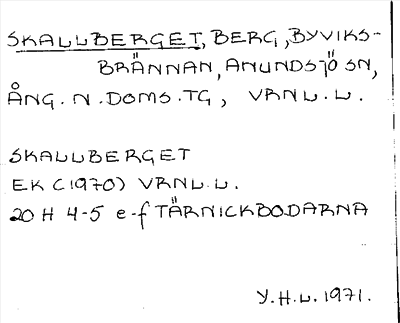 SKALLBERGET, BERG, BYVIKS-
BRÄNNAN, ANUNDSJÖ SN,
ÅNG. N. DOMS. TG, VRNL. L.
SKALLBERGET
EK (1970) VRNL. L.
20 H 4-5 e-f TÄRNICKBODARNA
Y. H. L. 1971.